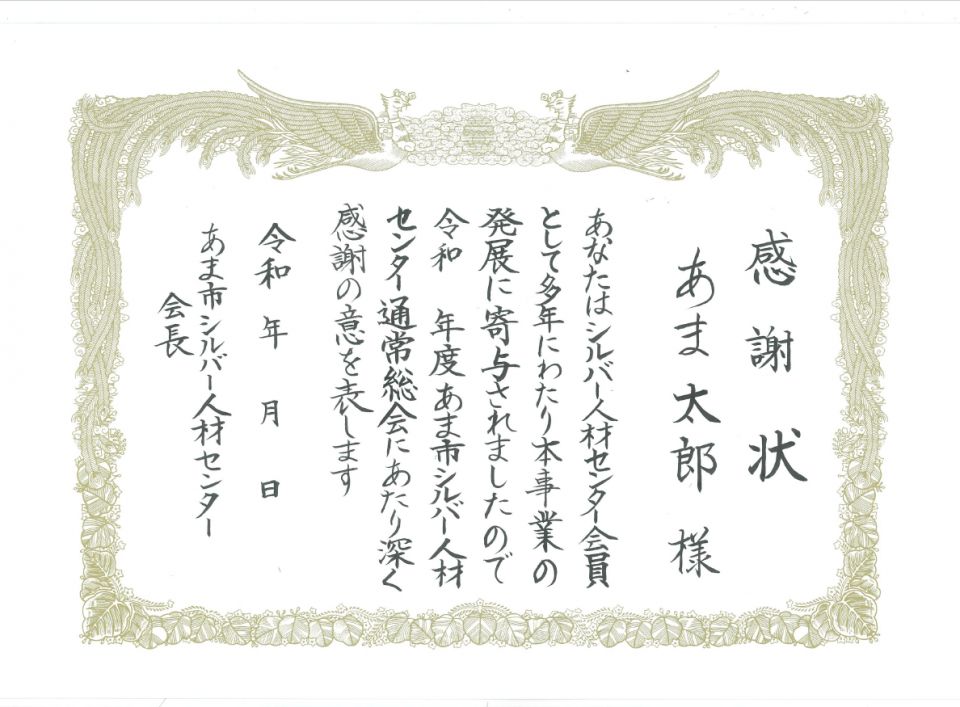 感謝状
あま太郎 様
あなたはシルバー人材センター会員
として多年にわたり本事業の
発展に寄与されましたので
令和　年度あま市シルバー人材
センター通常総会にあたり深く
感謝の意を表します
令和　年　月　日
あま市シルバー人材センター
会長